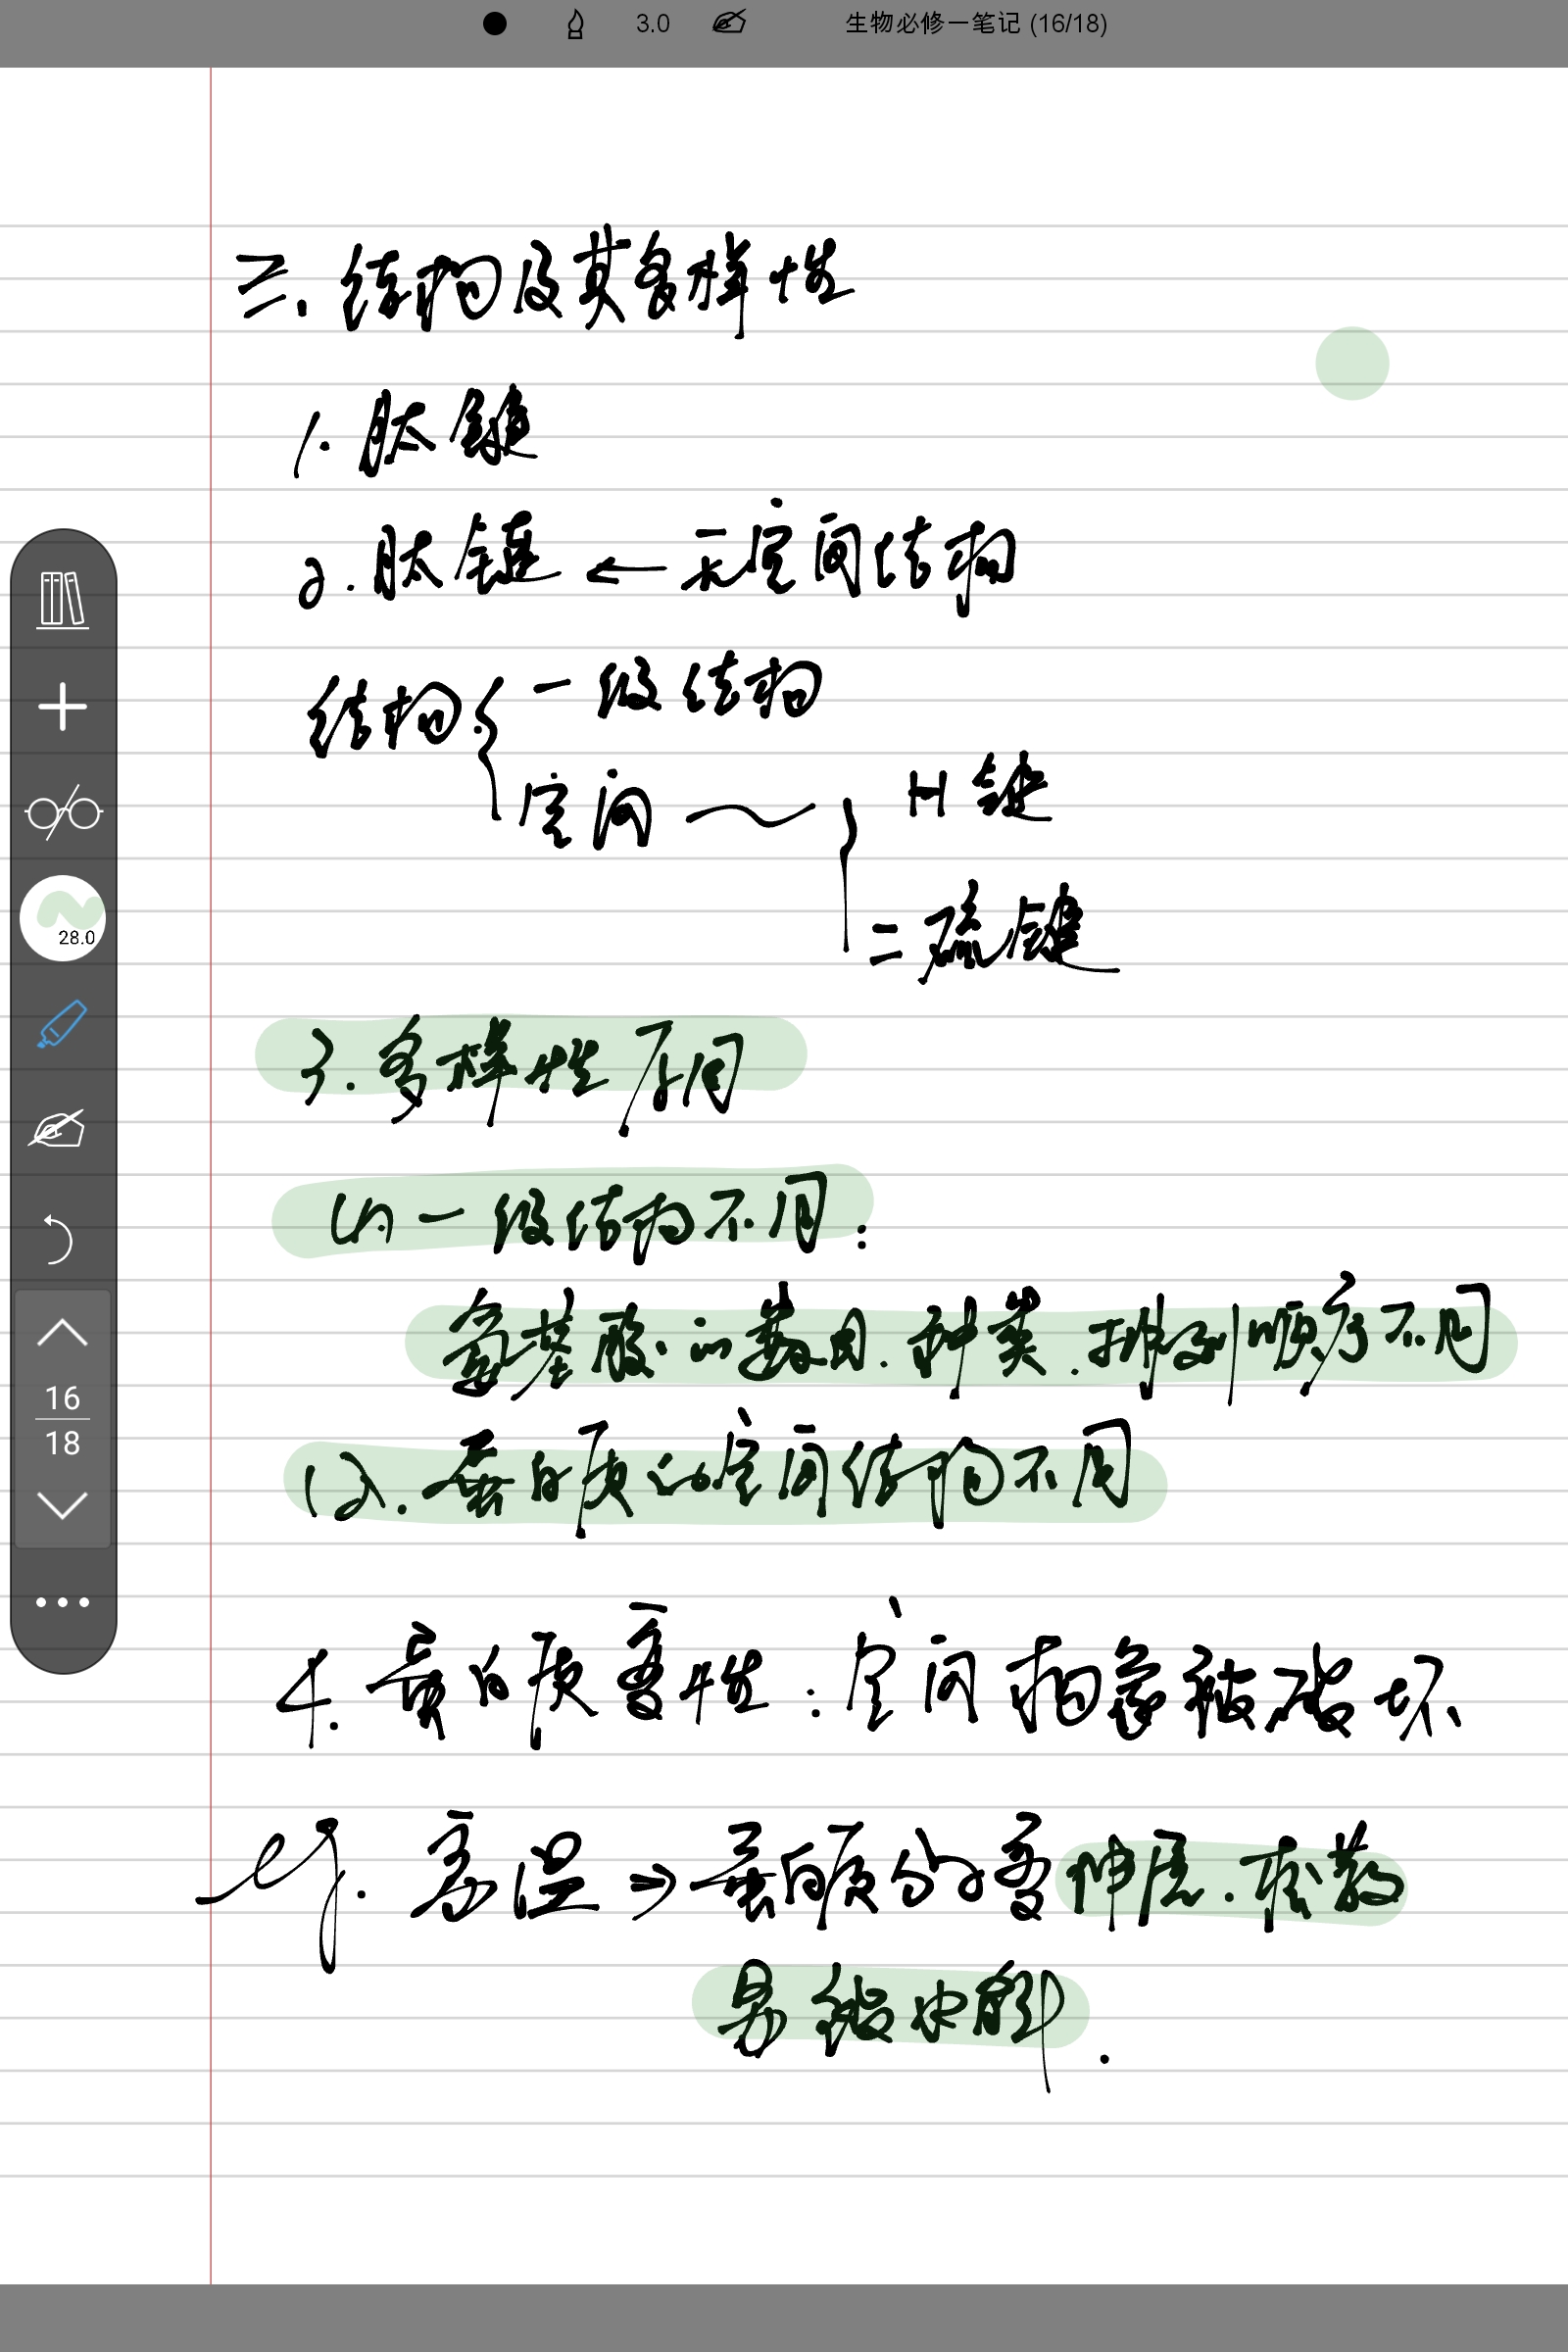 3.0 生物必修一笔记 (16/18)
三、结构及其多样性
1. 肽键
2. 肽链 ← 无空间结构
结构: 一级结构
空间 ~ H键
二硫键
28.0
3. 多样性原因
(1). 一级结构不同:
氨基酸的数目、种类、排列顺序不同
(2). 蛋白质的空间结构不同
16
18
4. 蛋白质变性: 空间构象被破坏
eg. 高温 ⇒ 蛋白质分子变伸展、松散
易被水解.